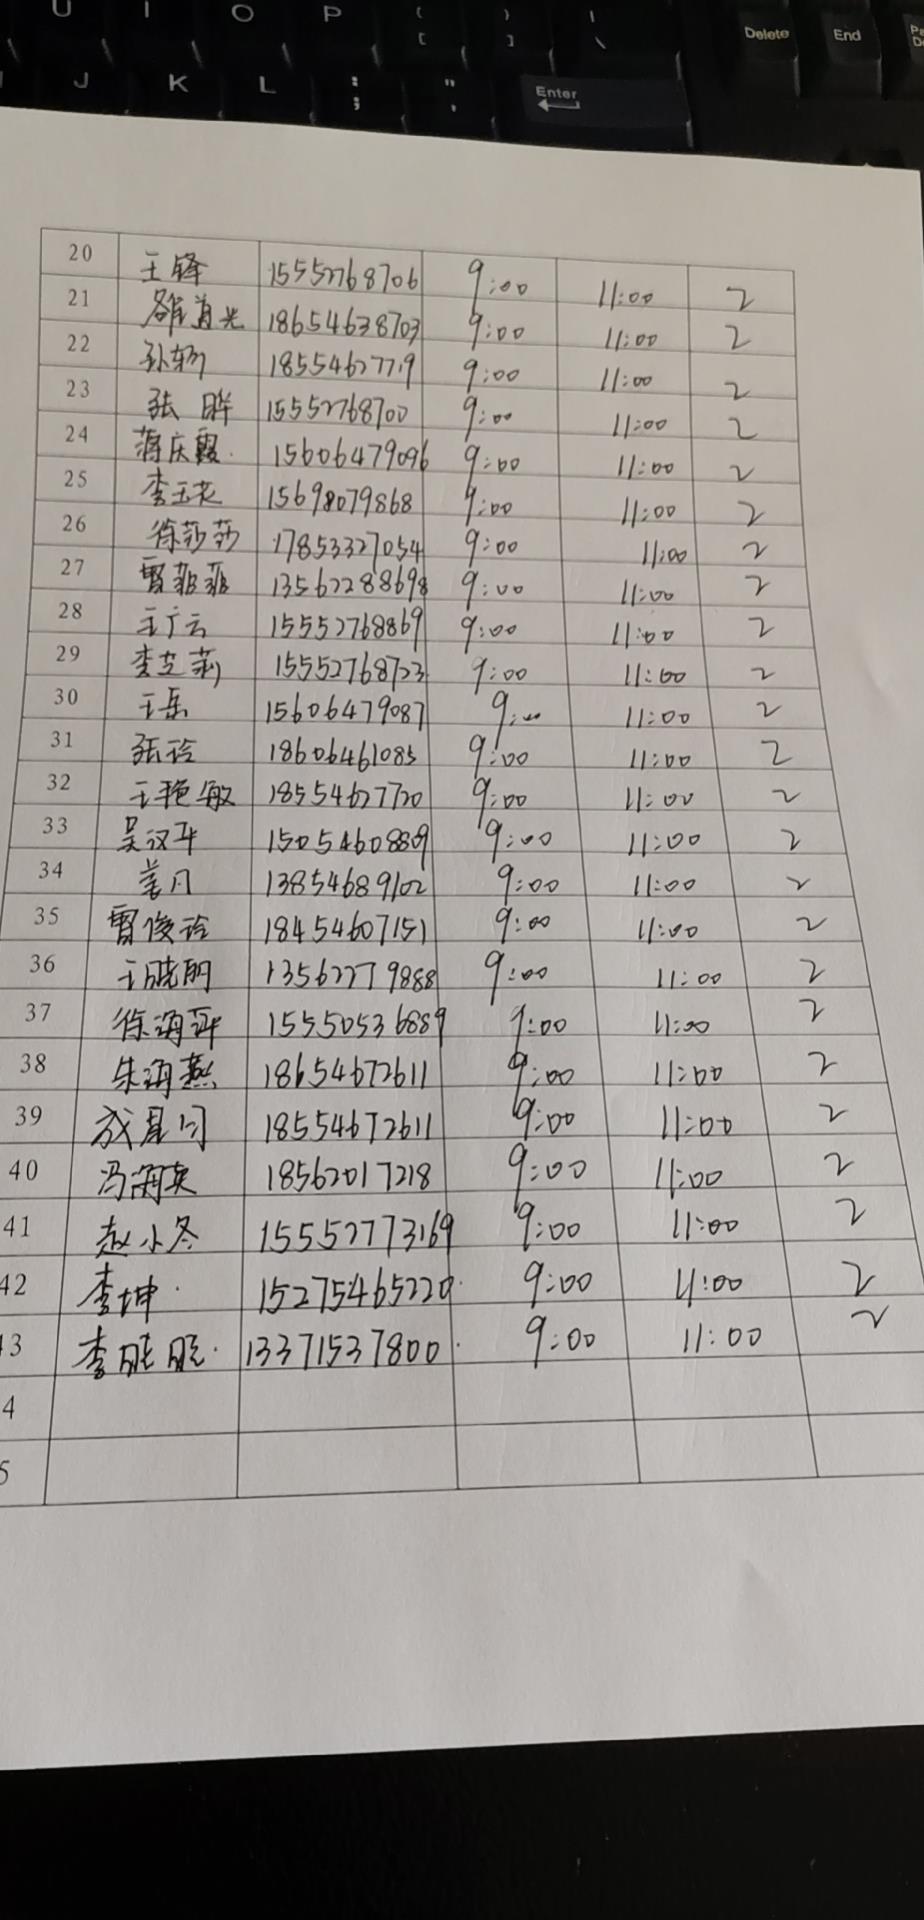 U I O P { [ } ] | \ Delete End
J K L : ; " , Enter
20 王锋 15552768706 9:00 11:00 2
21 肖光 18654638703 9:00 11:00 2
22 孙 18554627719 9:00 11:00 2
23 张 15552768700 9:00 11:00 2
24 蒋庆霞 15606479096 9:00 11:00 2
25 李玉花 15698079868 9:00 11:00 2
26 徐莎莎 17853327054 9:00 11:00 2
27 贾菲菲 13562288698 9:00 11:00 2
28 王广云 15552768869 9:00 11:00 2
29 李芝莉 15552768723 9:00 11:00 2
30 王岳 15606479087 9:00 11:00 2
31 张玲 18606461085 9:00 11:00 2
32 王艳敏 18554627720 9:00 11:00 2
33 吴汉华 15054608809 9:00 11:00 2
34 姜月 13854689102 9:00 11:00 2
35 贾俊玲 18454607151 9:00 11:00 2
36 王晓明 13562279888 9:00 11:00 2
37 徐海萍 15550536889 9:00 11:00 2
38 朱海燕 18654672611 9:00 11:00 2
39 成 18554672611 9:00 11:00 2
40 冯海英 18562017218 9:00 11:00 2
41 赵小冬 15552773169 9:00 11:00 2
42 李坤 15275465220 9:00 11:00 2
3 李 13371537800 9:00 11:00 2
4
5